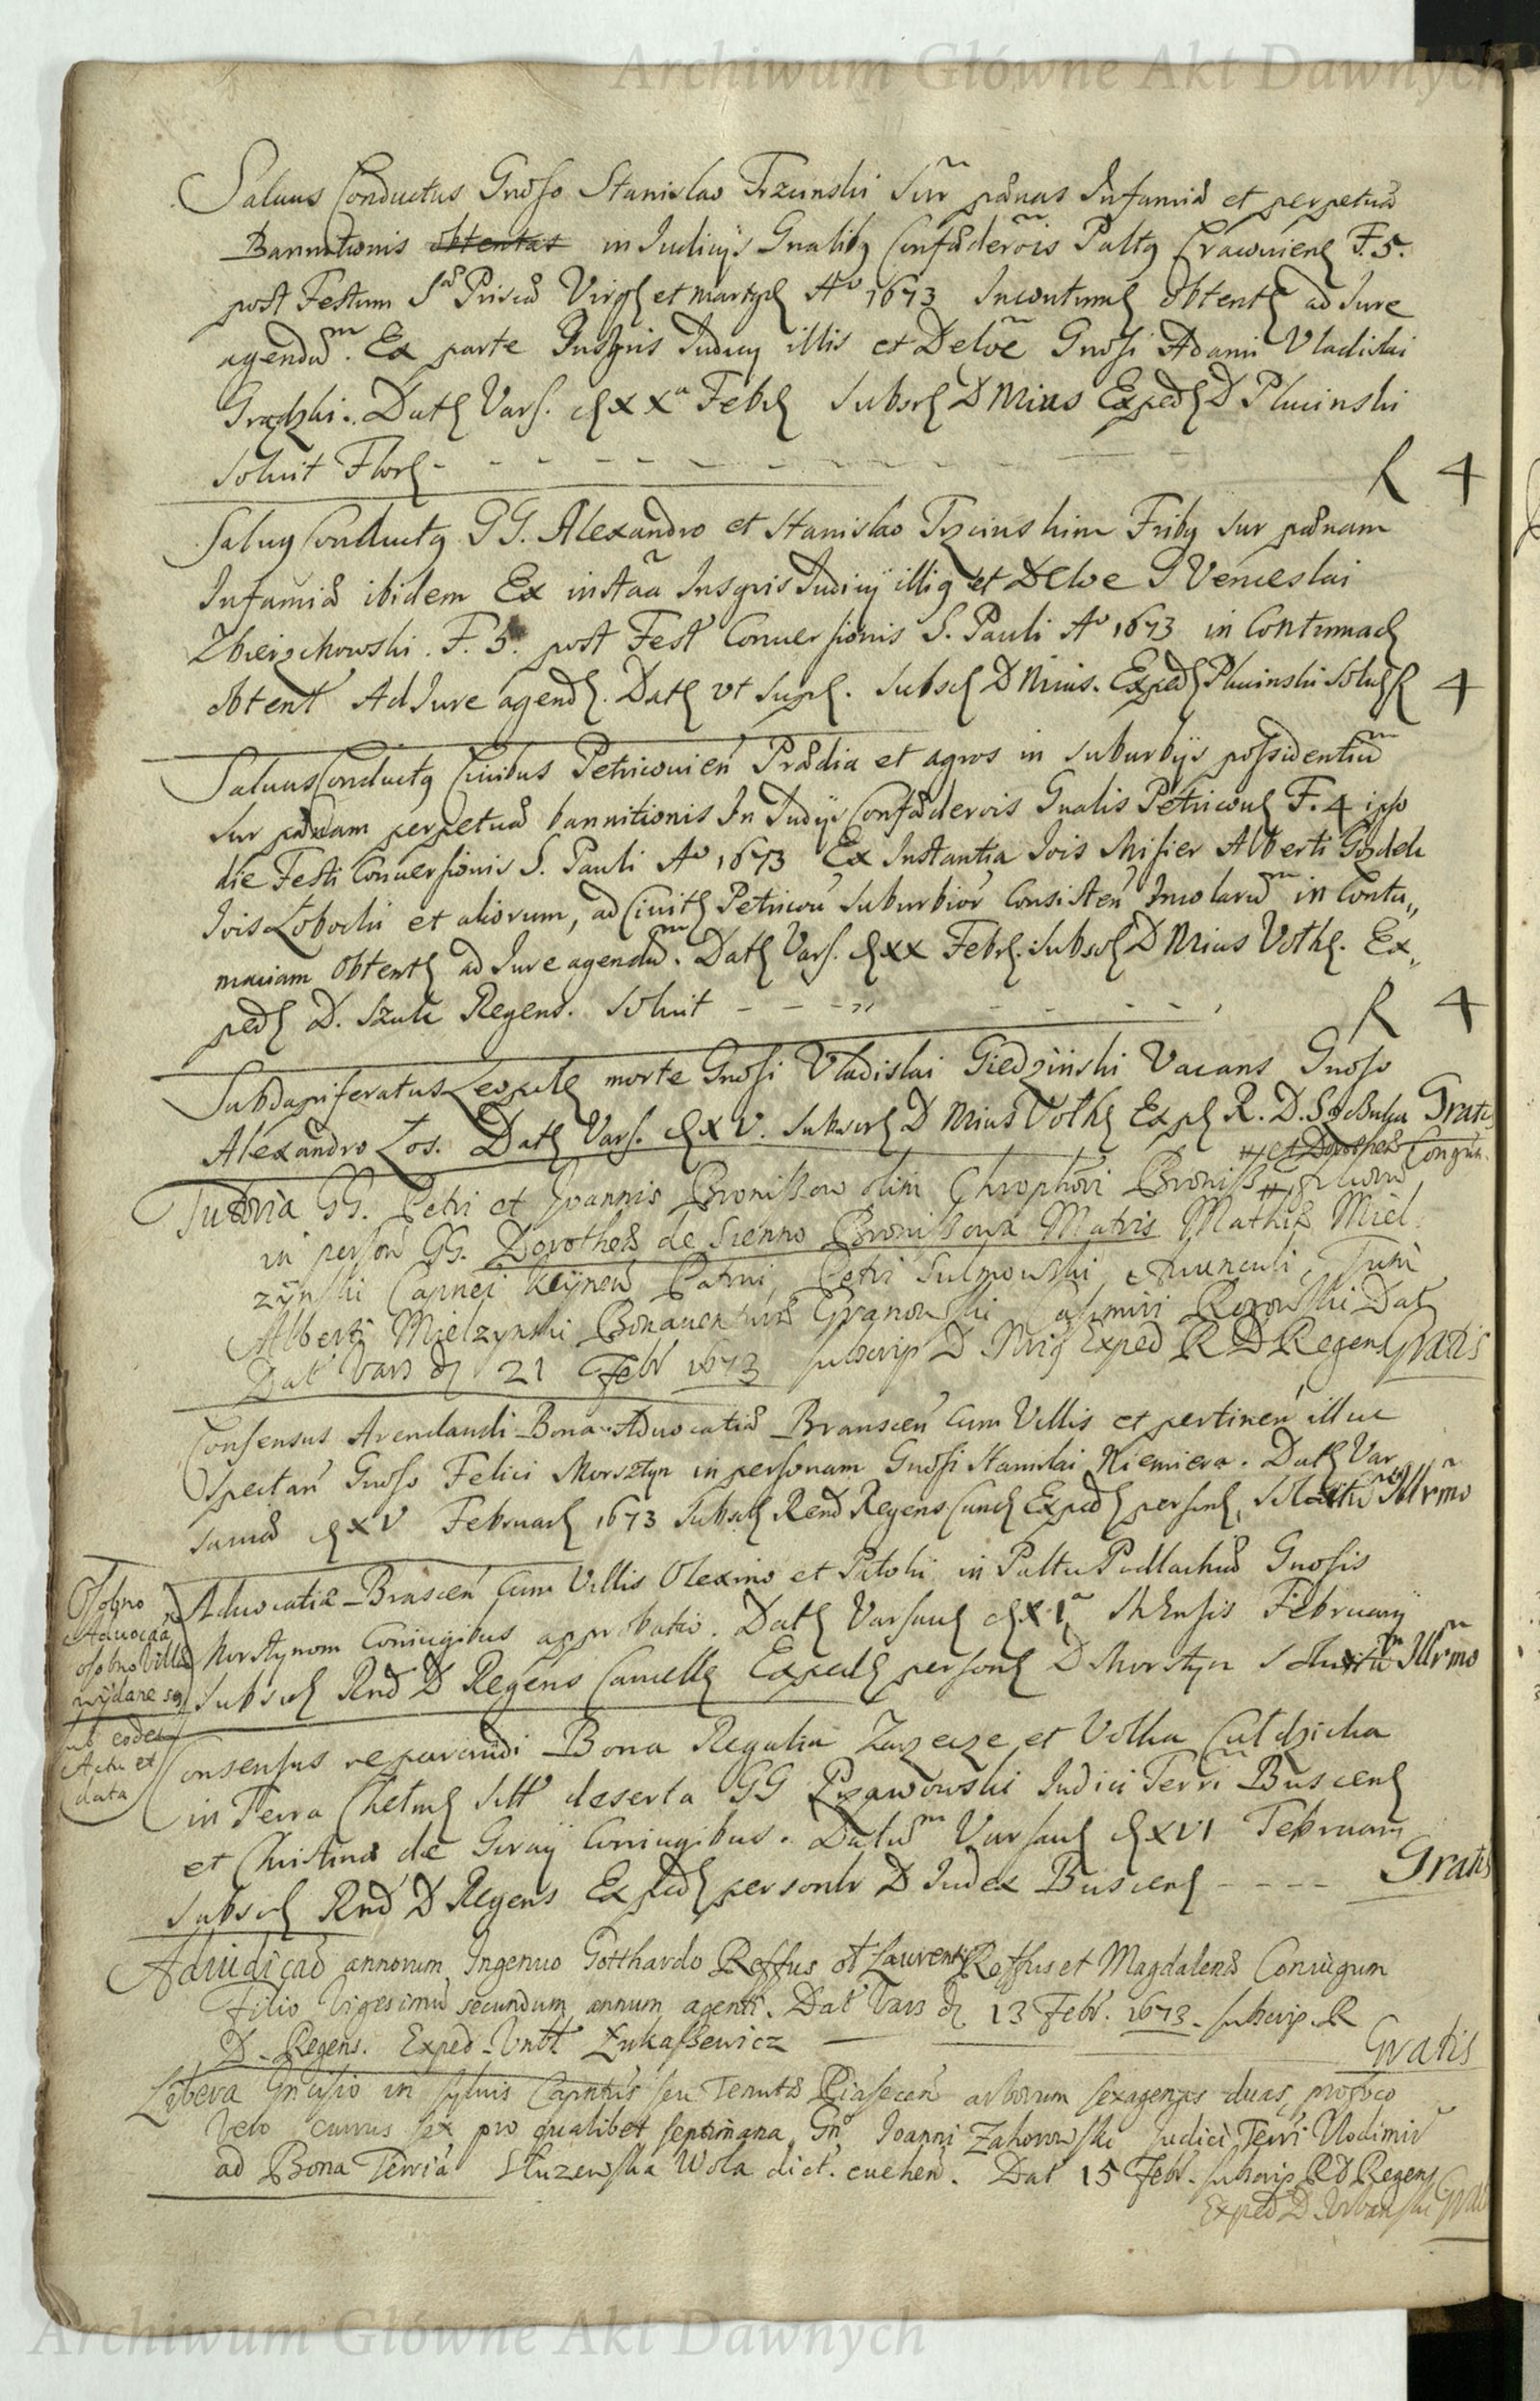 Archiwum Główne Akt Dawnych
Saluus Conductus Gnoso Stanislao Trzcinski sur pænas Infamiæ et perpetuæ
Bannitionis obtentas in Iudicijs Gnalibq Confæderois Palt9 Cracouien F. 5.
post Festum S. Priscæ Virg et martyr A° 1673 Incontum obtent ad Iure
agendum. Ex parte Insgris Iudicij illis et Deloe Gnosi Adami Vladislai
Grądzki. Dat Vars. d XXa Febr Subscr D Mius Exped D Plucinski
soluit Flor - - - - - - - R 4
Saluq Conductq GG. Alexandro et Stanislao Trzcinskim Fribq sur pænam
Infamiæ ibidem Ex instaa Insgris Iudicij illiq et Deloe G Venceslai
Zbierzchowski. F. 5. post Fest Conuersionis S. Pauli A° 1673 in Contumac
obtent Ad Iure agend. Dat vt supr. Subsc D Mius. Exped Plucinski Solu R 4
Saluus Conductq Ciuibus Petricouien Prædia et agros in suburbijs possidentium
sur pænam perpetuæ bannitionis In Iudijs Confæderois Gnalis Petricou F. 4 ipso
die Festi Conuersionis S. Pauli A° 1673 Ex Instantia Iois Misier Alberti Gozdek
Iois Lobocki et aliorum, ad Ciuit Petricou suburbior Consisten Incolarum in Contu„
maciam obtent ad Iure agendum. Dat Vars. d XX Febr. Subsc D Mius Voth. Ex„
ped D. Szulc Regens. Soluit - - - - - R 4
Subdapiferatus Leopoli morte Gnosi Vladislai Giedziński Vacans Gnoso
Alexandro Los. Dat Vars. d XV. Subscr D Mius Voth Exp R. D. Gratis
et Dorotheæ Congn.
Tutoria GG. Petri et Joannis Bronissow olim Chrophori Broniss filiorum
in person GG. Dorotheæ de Sienno Bronissowa Matris Mathiæ Miel
zynski Capnei Keynen Patrui, Petri Sulmowski Auunculi,
Alberti Mielzynski Bonauenturæ Gvanowski Casimiri Rozowski Dat
Dat Vars d 21 Febr 1673 subscrip D Mriq Exped R D Regens Gratis
Consensus Arendandi Bona Aduocatiæ Branscen cum Villis et pertinen illuc
spectan Gnoso Felici Morsztyn in personam Gnosi Stanislai Niemiera. Dat Var
sauiæ d XV Februar 1673 Subsc Rend Regens Canc Exped person, Illrmo
Osobno
Aduocãa
osobno Villæ
wydane są
sub eodem
Actu et
data
Aduocatiæ Branscen cum Villis Olexino et Patoki in Paltu Podlachiæ Gnosis
Morstynom Coniugibus approbatio. Dat Varsau d XIa Mensis Februarij
Subsc Rnd D Regens Cancell Exped person D Morstyn Soluit Illrmo
Consensus reparandi Bona Regalia Zarzecze et Volka Culdzicka
in Terra Chelm sitt deserta GG Pzawowski Iudici Terri Buscen
et Christinæ de Goray Coniugibus. Datum Varsau d XVI Februarij
Subsc Rnd D Regens Exped personlr D Iudex Buscen - - - - Gratis
Adiudicao annorum Ingenuo Gotthardo Roffus ot Laurentij Roffus et Magdalenæ Coniugum
filio Vigesimum secundum annum agenti. Dat Vars d 13 Febr. 1673. subscrip. R
D. Regens. Exped Vrbt Łukaßewicz Gratis
Libera Incisio in syluis Capntus seu Tenutæ Piasecen arborum sexagenas duas, pro foco
vero currus sex pro qualibet septimana Gn Joanni Zahorowski Judici Terri Vlodimir
ad Bona Terria Służewska Wola dict. euehen. Dat 15 Febr. subscrip RD Regens
Exped D Vrbanski Grat
Archiwum Główne Akt Dawnych